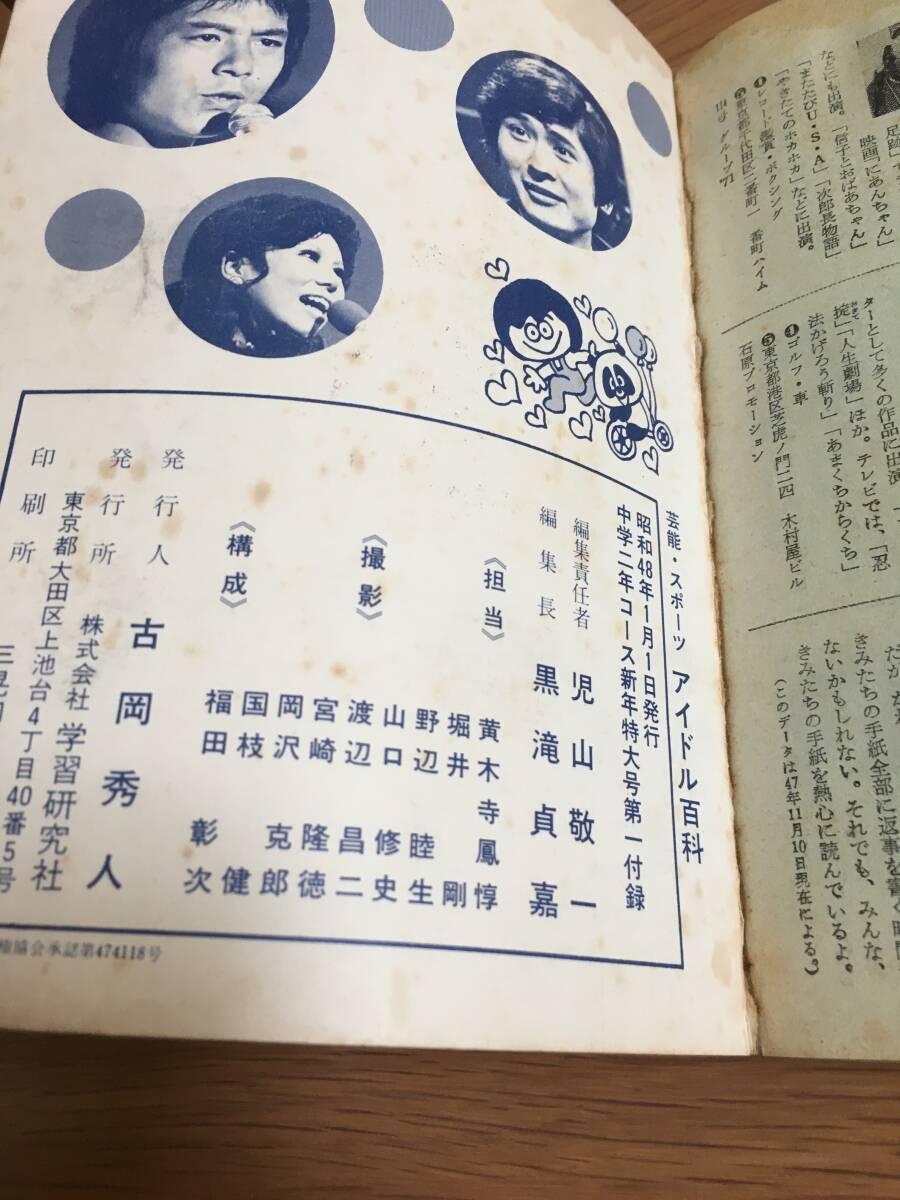 足跡」で
映画「にあんちゃん」
などにも出演。「信子とおばあちゃん」
「またたびU・S・A」「次郎長物語」
「やきたてのホカホカ」などに出演。
❹レコード鑑賞・ボクシング
❺東京都千代田区二番町一 番町ハイム
114号 グループ71
ターとして多くの作品に出演
掟」「人生劇場」ほか。テレビでは、「忍
法かげろう斬り」「あまくちからくち」
❹ゴルフ・車
❺東京都港区芝虎ノ門二四 木村屋ビル
石原プロモーション
きみたちの手紙全部に返事を書く時間
ないかもしれない。それでも、みんな、
きみたちの手紙を熱心に読んでいるよ。
(このデータは47年11月10日現在による。)
芸能・スポーツ アイドル百科
昭和48年1月1日発行
中学二年コース新年特大号第一付録
編集責任者 児山敬一
編集長 黒滝貞嘉
《担当》 黄木寺鳳惇
堀井 剛
野辺睦生
山口修史
《撮影》 渡辺昌二
宮崎隆徳
岡沢克郎
国枝 健
《構成》 福田彰次
発行人 古岡秀人
発行所 株式会社 学習研究社
東京都大田区上池台4丁目40番5号
印刷所
権協会承認第474118号